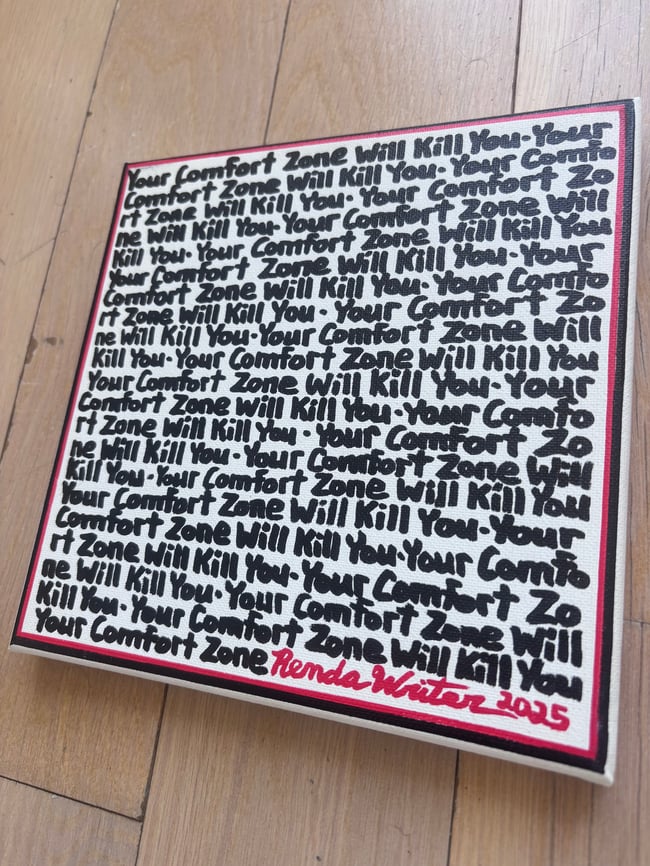 Your Comfort Zone Will Kill You-Your
Comfort Zone Will Kill You- Your Comfo
rt Zone Will Kill You- Your Comfort Zo
ne Will Kill You- Your Comfort Zone Will
Kill You- Your Comfort Zone Will Kill You
Your Comfort Zone Will Kill You-Your
Comfort Zone Will Kill You- Your Comfo
rt Zone Will Kill You- Your Comfort Zo
ne Will Kill You-Your Comfort Zone Will
Kill You-Your Comfort Zone Will Kill You
Your Comfort Zone Will Kill You-Your
Comfort Zone Will Kill You-Your Comfo
rt Zone Will Kill You - Your Comfort Zo
ne Will Kill You-Your Comfort Zone Will
Kill You-Your Comfort Zone Will Kill You
Your Comfort Zone Will Kill You-Your
Comfort Zone Will Kill You-Your Comfo
rt Zone Will Kill You- Your Comfort Zo
ne Will Kill You-Your Comfort Zone Will
Kill You- Your Comfort Zone Will Kill You
Your Comfort Zone Renda Writer 2025